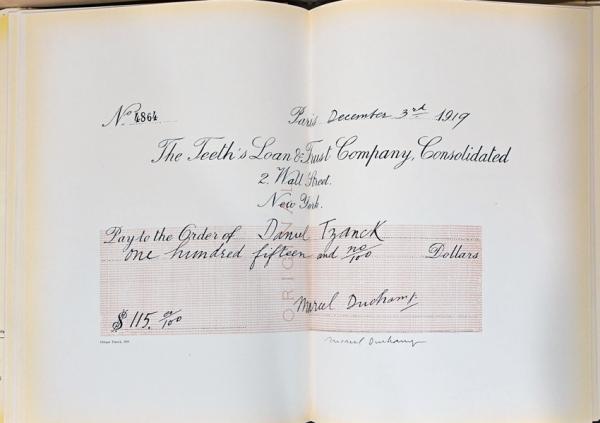 No 4864
Paris December 3rd 1919
The Teeth's Loan & Trust Company, Consolidated
2. Wall Street.
New York.
ORIGINAL
Pay to the Order of Daniel Tzanck
one hundred fifteen and no/100 Dollars
Marcel Duchamp
$ 115. 0/100
Marcel Duchamp